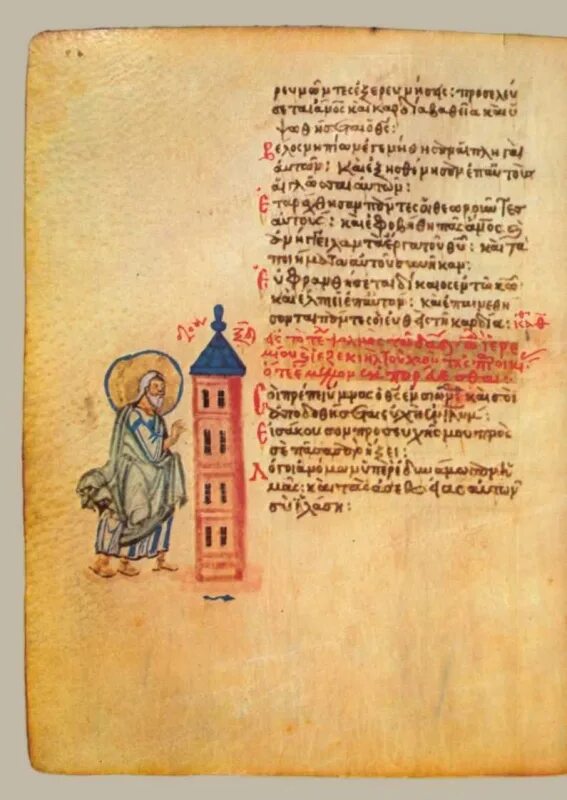 ρευνῶντες ἐξερευνήσεις: προσελεύ
σεται ἄνος καὶ καρδία βαθεῖα καὶ ὑ
ψωθήσεται ὁ θς:
Βέλος νηπίων ἐγενήθησαν αἱ πληγαὶ
αὐτῶν: καὶ ἐξησθένησαν ἐπ αὐτοὺς
αἱ γλῶσσαι αὐτῶν:
Ἐταράχθησαν πάντες οἱ θεωροῦντες
αὐτούς: καὶ ἐφοβήθη πᾶς ἄνος
ἀνήγγειλαν τὰ ἔργα τοῦ θυ: καὶ τὰ
ποιήματα αὐτοῦ συνῆκαν:
Εὐφρανθήσεται δίκαιος ἐν τῷ κω
καὶ ἐλπιεῖ ἐπ αὐτόν: καὶ ἐπαινεθή
σονται πάντες οἱ εὐθεῖς τῇ καρδία:
Σοὶ πρέπει ὕμνος ὁ θς ἐν σιών καὶ σοὶ
ἀποδοθήσεται εὐχὴ ἐν ιλημ:
Εἰσάκουσον προσευχῆς μου πρὸς
σὲ πᾶσα σὰρξ ἥξει:
Λόγοι ἀνόμων ὑπερεδυνάμωσαν ἡ
μᾶς: καὶ τὰς ἀσεβείας αὐτῶν
σὺ ἱλάση: